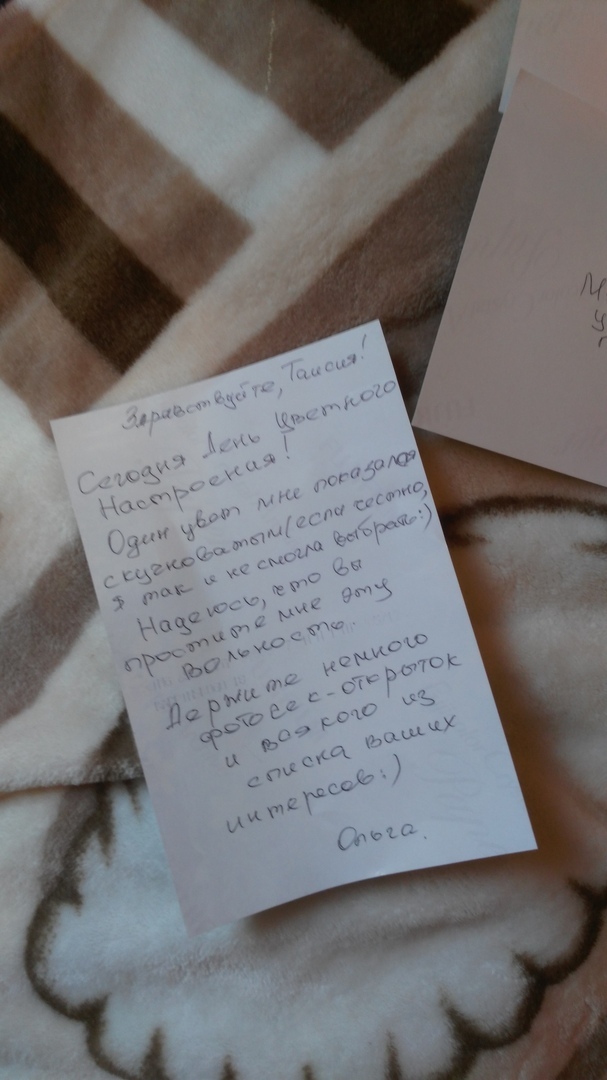 Здравствуйте, Таисия!
Сегодня День Цветного
Настроения!
Один цвет мне показался
скучноватым (если честно,
я так и не смогла выбрать:)
Надеюсь, что вы
простите мне эту
вольность.
Держите немного
фотосек-открыток
и всякого из
списка ваших
интересов:)
Ольга.